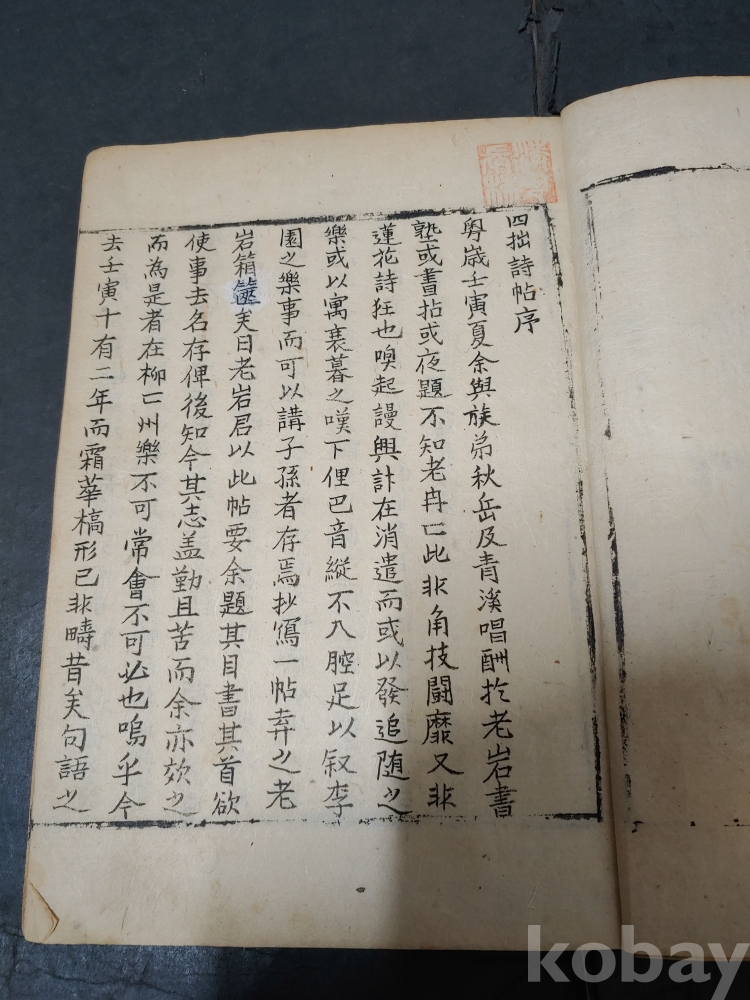 四拙詩帖序
粤歲壬寅夏余與族弟秋岳及青溪唱酬扵老岩書
塾或晝拈或夜題不知老冉〻此非角技鬪靡又非
蓮花詩狂也嗅起謾興計在消遣而或以發追随之
樂或以寓衰暮之嘆下俚巴音縱不入腔足以叙李
園之樂事而可以講子孫者存焉抄寫一帖弆之老
岩箱篋矣日老岩君以此帖要余題其目書其首欲
使事去名存俾後知今其志盖勤且苦而余亦效之
而為是者在柳〻州樂不可常會不可必也嗚乎今
去壬寅十有二年而霜華槁形已非疇昔矣句語之
kobay